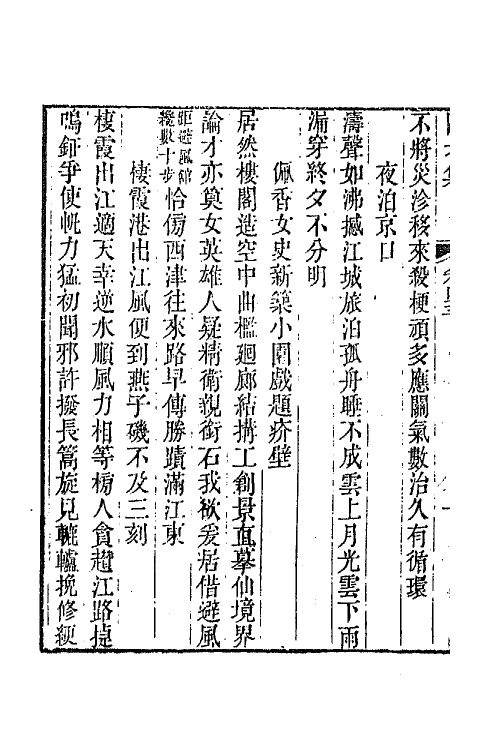 不將災沴移來殺梗頑多應關氣數治久有循環
夜泊京口
濤聲如沸撼江城旅泊孤舟睡不成雲上月光雲下雨
漏穿終夕不分明
佩香女史新築小園戲題疥壁
居然樓閣造空中曲檻迴廊結搆工創景直摹仙境界
論才亦奠女英雄人疑精衛親銜石我欲爰居借避風
距避風館纔數十步恰傍西津往來路早傳勝蹟滿江東
棲霞港出江風便到燕子磯不及三刻
棲霞出江適天幸逆水順風力相等榜人貪趲江路捷
鳴鉦爭使帆力猛初聞邪許撥長篙旋見轆轤挽修綆